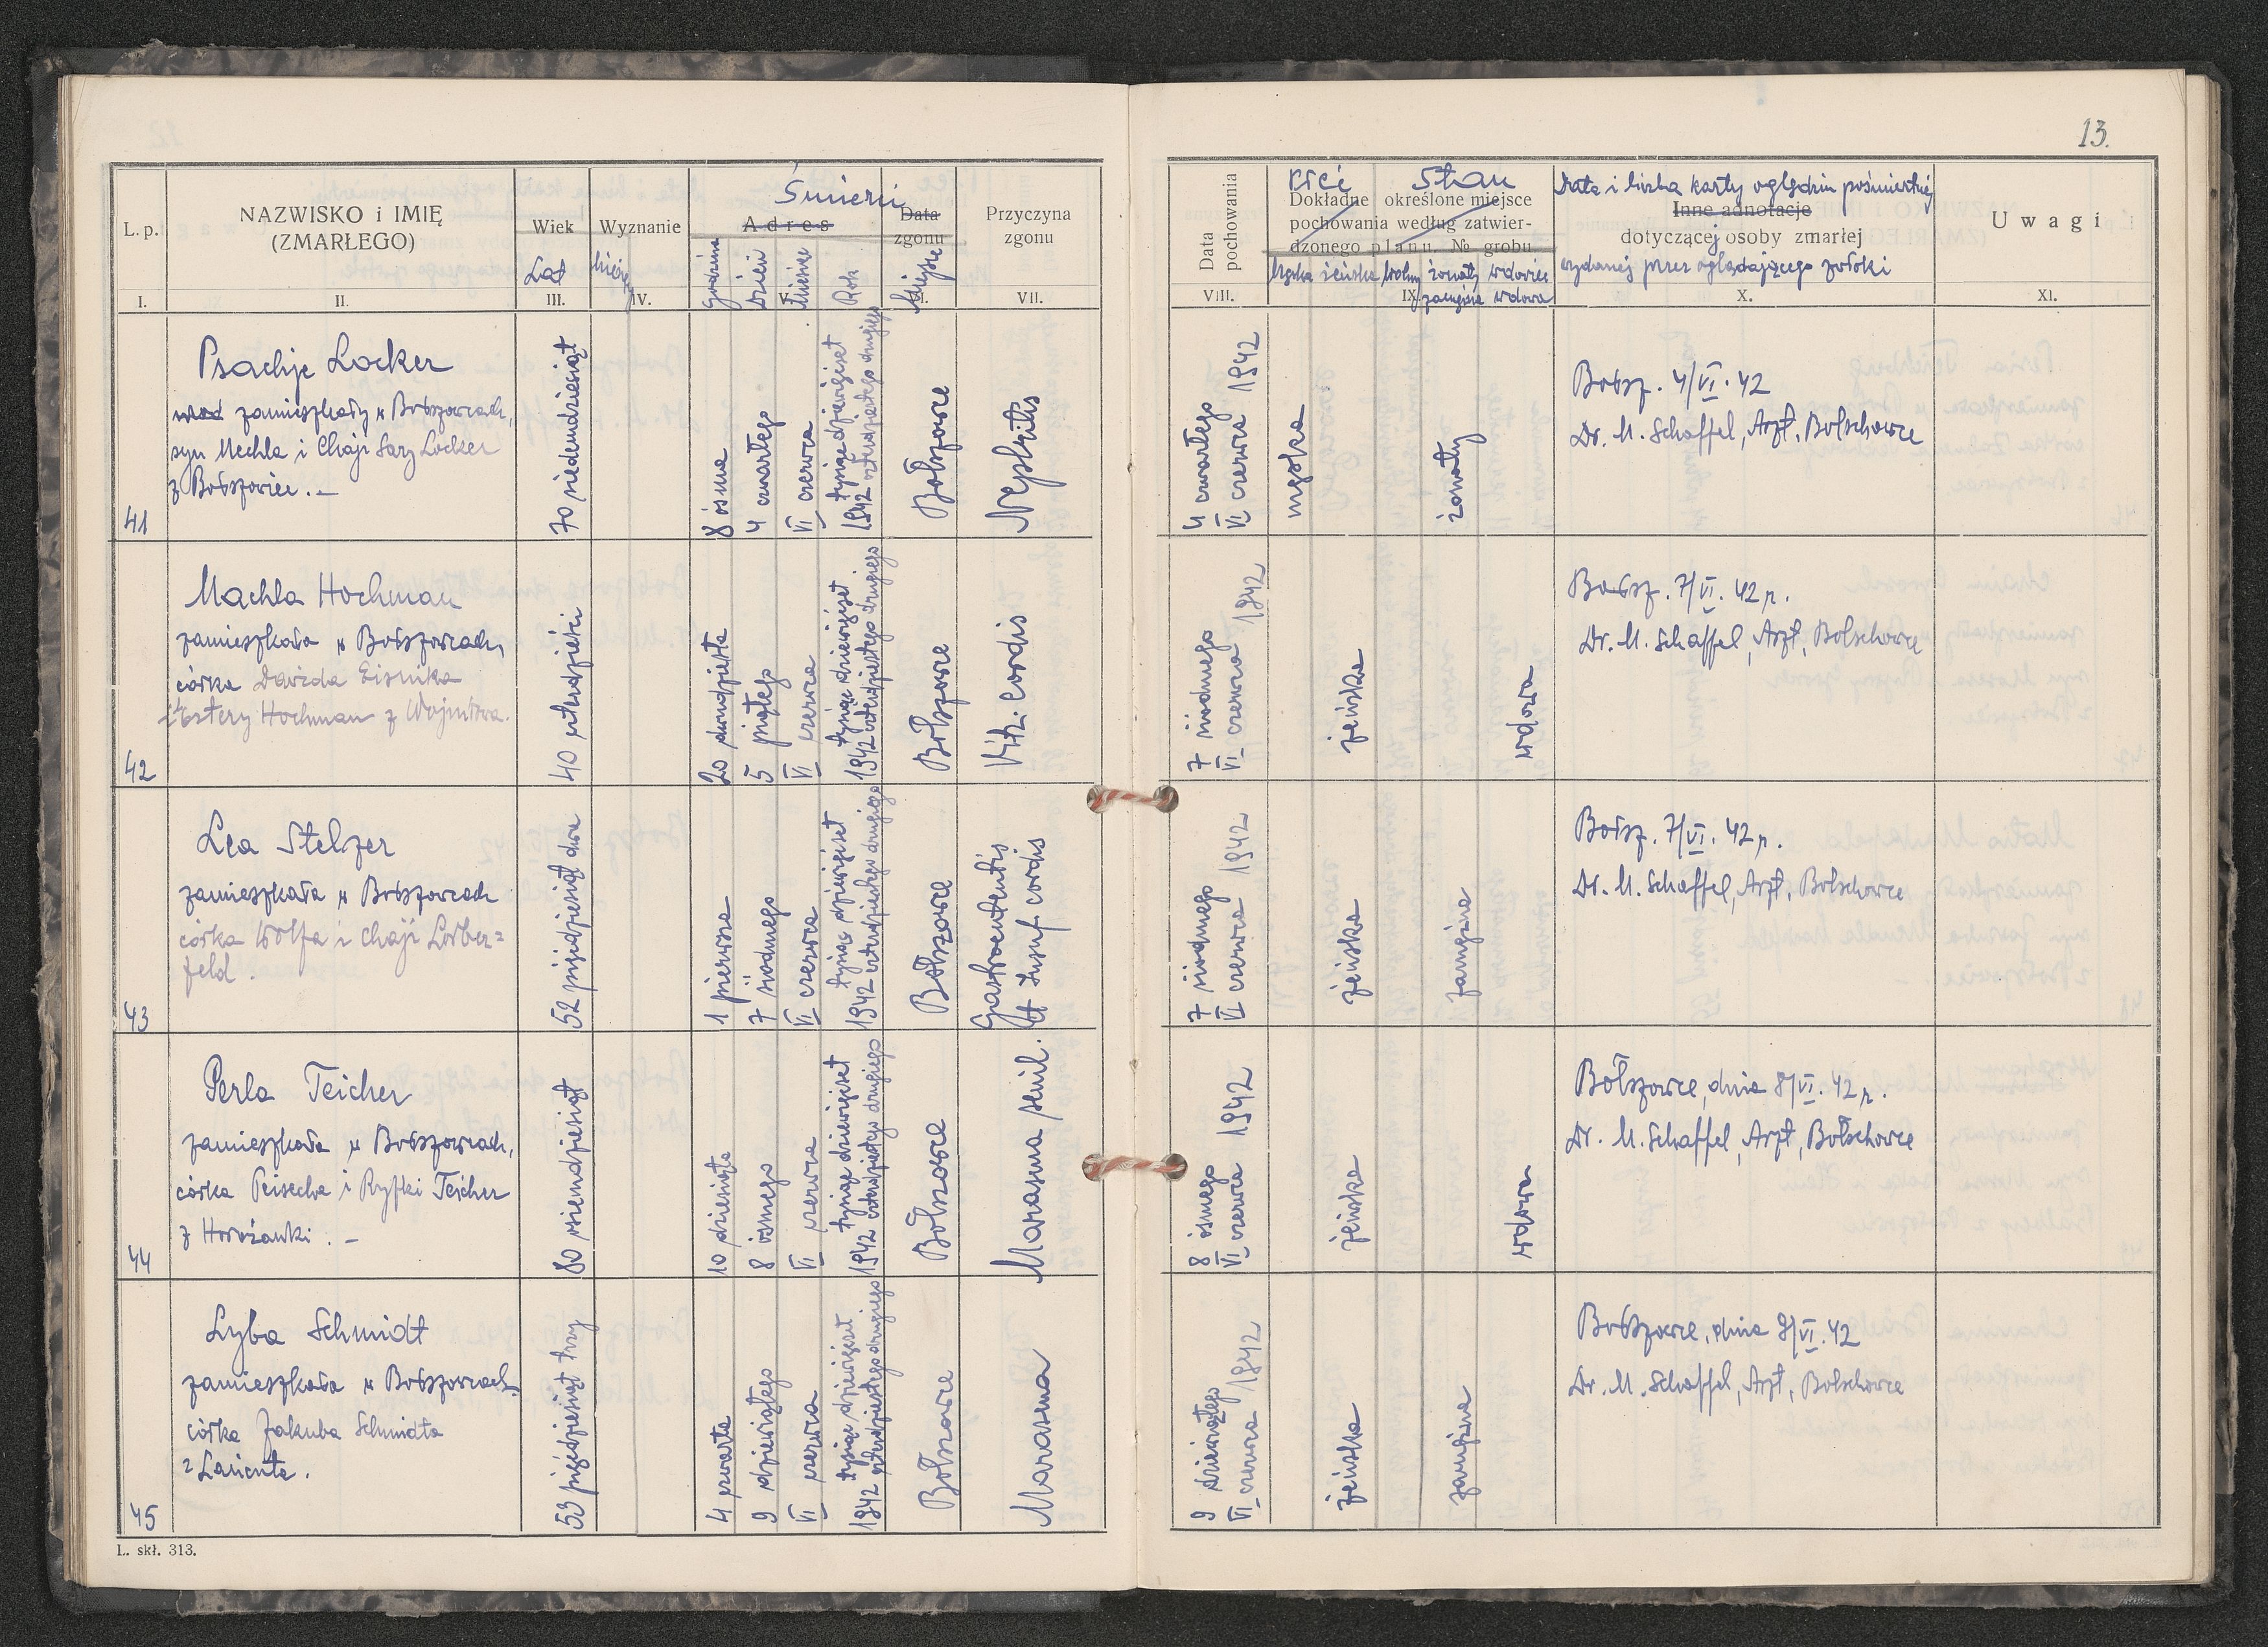 13.
L. p.
NAZWISKO i IMIĘ
(ZMARŁEGO)
Wiek
Lat
Wyznanie
Śmierci
Adres
godzina
Dzień
Miesiąc
Rok
Data
zgonu
Miejsce
Przyczyna
zgonu
I.
II.
III.
IV.
V.
VII.
Data
pochowania
Płeć
Stan
Dokładne określone miejsce
pochowania według zatwier-
dzonego planu. № grobu
Męska żeńska wolny żonaty wdowiec
zamężna wdowa
Data i liczba karty oględzin pośmiertnej
Inne adnotacje
dotyczącej osoby zmarłej
wydanej przez oglądającego zwłoki
Uwagi
VIII.
IX.
X.
XI.
41
Psachje Locker
zamieszkały w Bołszowcach,
syn Mechla i Chaji Sary Locker
z Bołszowiec. —
70 siedemdziesiąt
8 ósma
4 czwartego
VI czerwca
tysiąc dziewięćset
1942 czterdziestego drugiego
Bołszowce
Nephritis
4 czwartego
VI czerwca 1942
męska
żonaty
Bołsz. 4/VI. 42
Dr. M. Schaffel, Arzt, Bolschowce
42
Machla Hochman
zamieszkała w Bołszowcach,
córka Dawida Eisnika
i Estery Hochman z Wojniłowa.
40 czterdzieści
20 dwudziesta
5 piątego
VI czerwca
tysiąc dziewięćset
1942 czterdziestego drugiego
Bołszowce
Vit. cordis
7 siódmego
VI czerwca 1942
żeńska
wdowa
Bołsz. 7/VI. 42 r.
Dr. M. Schaffel, Arzt, Bolschowce
43
Lea Stelzer
zamieszkała w Bołszowcach
córka Wolfa i Chaji Lorber=
feld.
52 pięćdziesiąt dwa
1 pierwsza
7 siódmego
VI czerwca
tysiąc dziewięćset
1942 czterdziestego drugiego
Bołszowce
Gastroenteritis
et Insuf. cordis
7 siódmego
VI czerwca 1942
żeńska
zamężna
Bołsz. 7/VI. 42 r.
Dr. M. Schaffel, Arzt, Bolschowce
44
Perla Teicher
zamieszkała w Bołszowcach,
córka Peisecha i Ryfki Teicher
z Horożanki. —
80 osiemdziesiąt
10 dziesiąta
8 ósmego
VI czerwca
tysiąc dziewięćset
1942 czterdziestego drugiego
Bołszowce
Marasma senil.
8 ósmego
VI czerwca 1942
żeńska
wdowa
Bołszowce, dnia 8/VI. 42 r.
Dr. M. Schaffel, Arzt, Bołschowce
45
Lyba Schmidt
zamieszkała w Bołszowcach,
córka Jakuba Schmidta
z Łańcuta.
53 pięćdziesiąt trzy
4 czwarta
9 dziewiątego
VI czerwca
tysiąc dziewięćset
1942 czterdziestego drugiego
Bołszowce
Marasma
9 dziewiątego
VI czerwca 1942
żeńska
zamężna
Bołszowce, dnia 9/VI. 42
Dr. M. Schaffel, Arzt, Bolschowce
L. skł. 313.